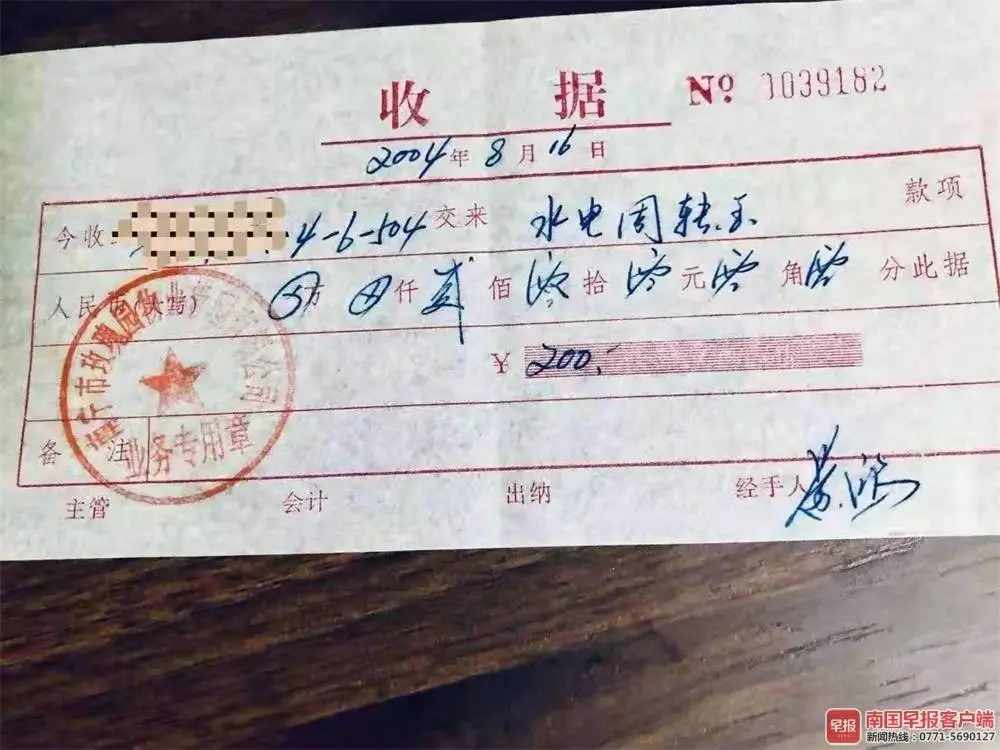 收 据 Nº 0039182
2004年8月16日
今收 4-6-504交来 水电周转金 款项
人民币(大写) ⊗万 ⊗仟 贰佰 零拾 零元 零角 零分 此据
¥ 200.
市玫瑰园物业 公司
业务专用章
备 注
主管 会计 出纳 经手人
早报 南国早报客户端
新闻热线:0771-5690127